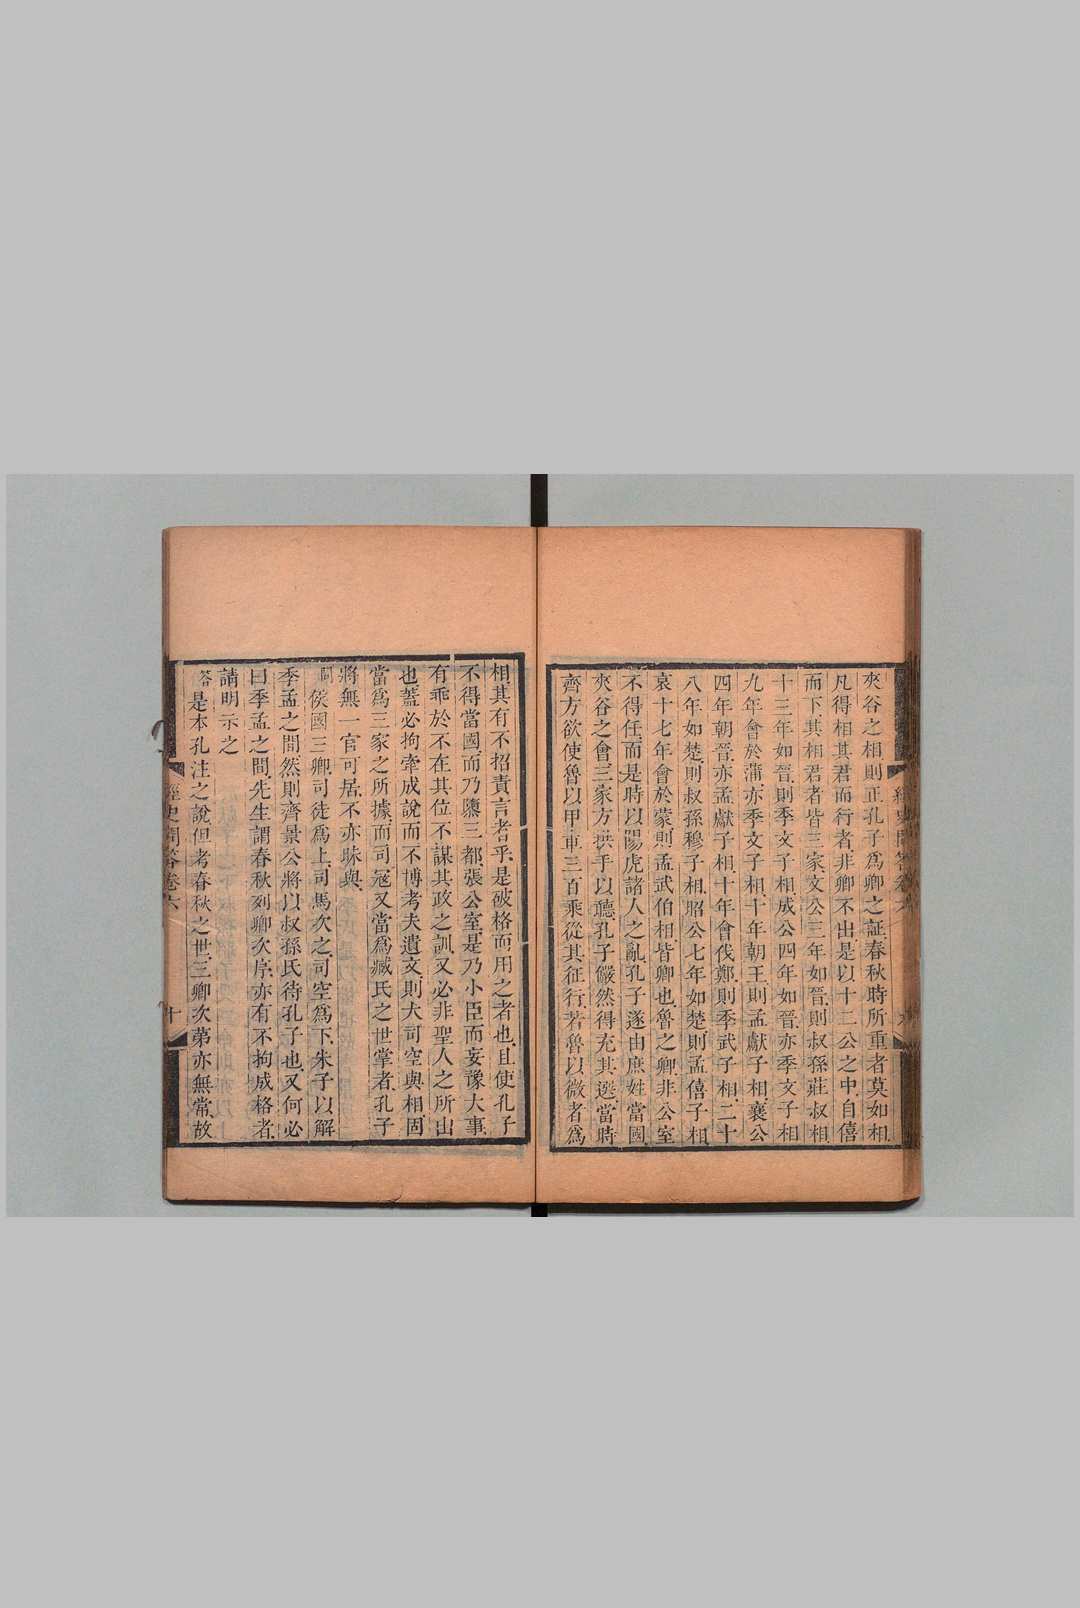 夾谷之相則正孔子爲卿之証春秋時所重者莫如相
凡得相其君而行者非卿不出是以十二公之中自僖
而下其相君者皆三家文公三年如晉則叔孫莊叔相
十三年如晉則季文子相成公四年如晉亦季文子相
九年會於蒲亦季文子相十年朝王則孟獻子相襄公
四年朝晉亦孟獻子相十年會伐鄭則季武子相二十
八年如楚則叔孫穆子相昭公七年如楚則孟僖子相
哀十七年會於蒙則孟武伯相皆卿也魯之卿非公室
不得任而是時以陽虎諸人之亂孔子遂由庶姓當國
夾谷之會三家方拱手以聽孔子儼然得充其選當時
齊方欲使魯以甲車三百乘從其征行若魯以微者爲
相其有不招責言者乎是破格而用之者也且使孔子
不得當國而乃墮三都張公室是乃小臣而妄豫大事
有乖於不在其位不謀其政之訓又必非聖人之所出
也蓋必拘牽成說而不博考夫遺文則大司空與相固
當爲三家之所據而司寇又當爲臧氏之世掌者孔子
將無一官可居不亦昧與
問侯國三卿司徒爲上司馬次之司空爲下朱子以解
季孟之間然則齊景公將以叔孫氏待孔子也又何必
曰季孟之間先生謂春秋列卿次序亦有不拘成格者
請明示之
答是本孔注之說但考春秋之世三卿次第亦無常故
經史問答卷六
十